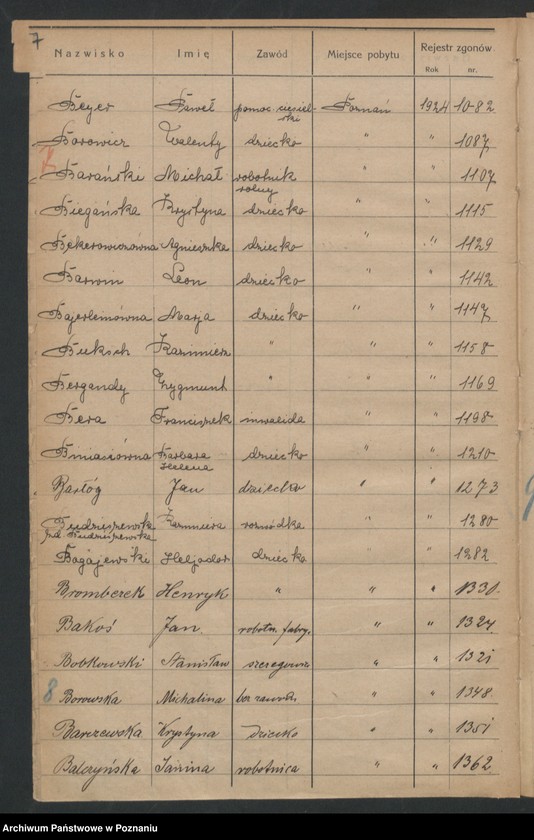 7
Nazwisko Imię Zawód Miejsce pobytu Rejestr zgonów
Rok nr.
Beyer Paweł pomoc. ciesiel-ski Poznań 1924 1082
Borowicz Walenty dziecko " " 1087
Barański Michał robotnik rolny " " 1107
Biegańska Krystyna dziecko " " 1115
Bekerowiczówna Agnieszka dziecko " " 1129
Barwin Leon dziecko " " 1142
Bajerlemówna Marja dziecko " " 1147
Buksch Kazimierz " " " 1158
Bergandy Zygmunt " " " 1169
Bera Franciszek inwalida " " 1198
Biniasiówna Barbara Helena dziecko " " 1210
Bartóg Jan dziecko " " 1273
Kazimiera rozwódka " " 1280
Bogajewski Heljodor dziecko " " 1282
Bromberek Henryk " " " 1330
Bakoś Jan. robotn. fabry. " " 1327
Bobkowski Stanisław szeregowiec " " 1321
8 Borowska Michalina bez zawodu " " 1348
Barczewska Krystyna dziecko " " 1351
Balczyńska Janina robotnica " " 1362
Archiwum Państwowe w Poznaniu